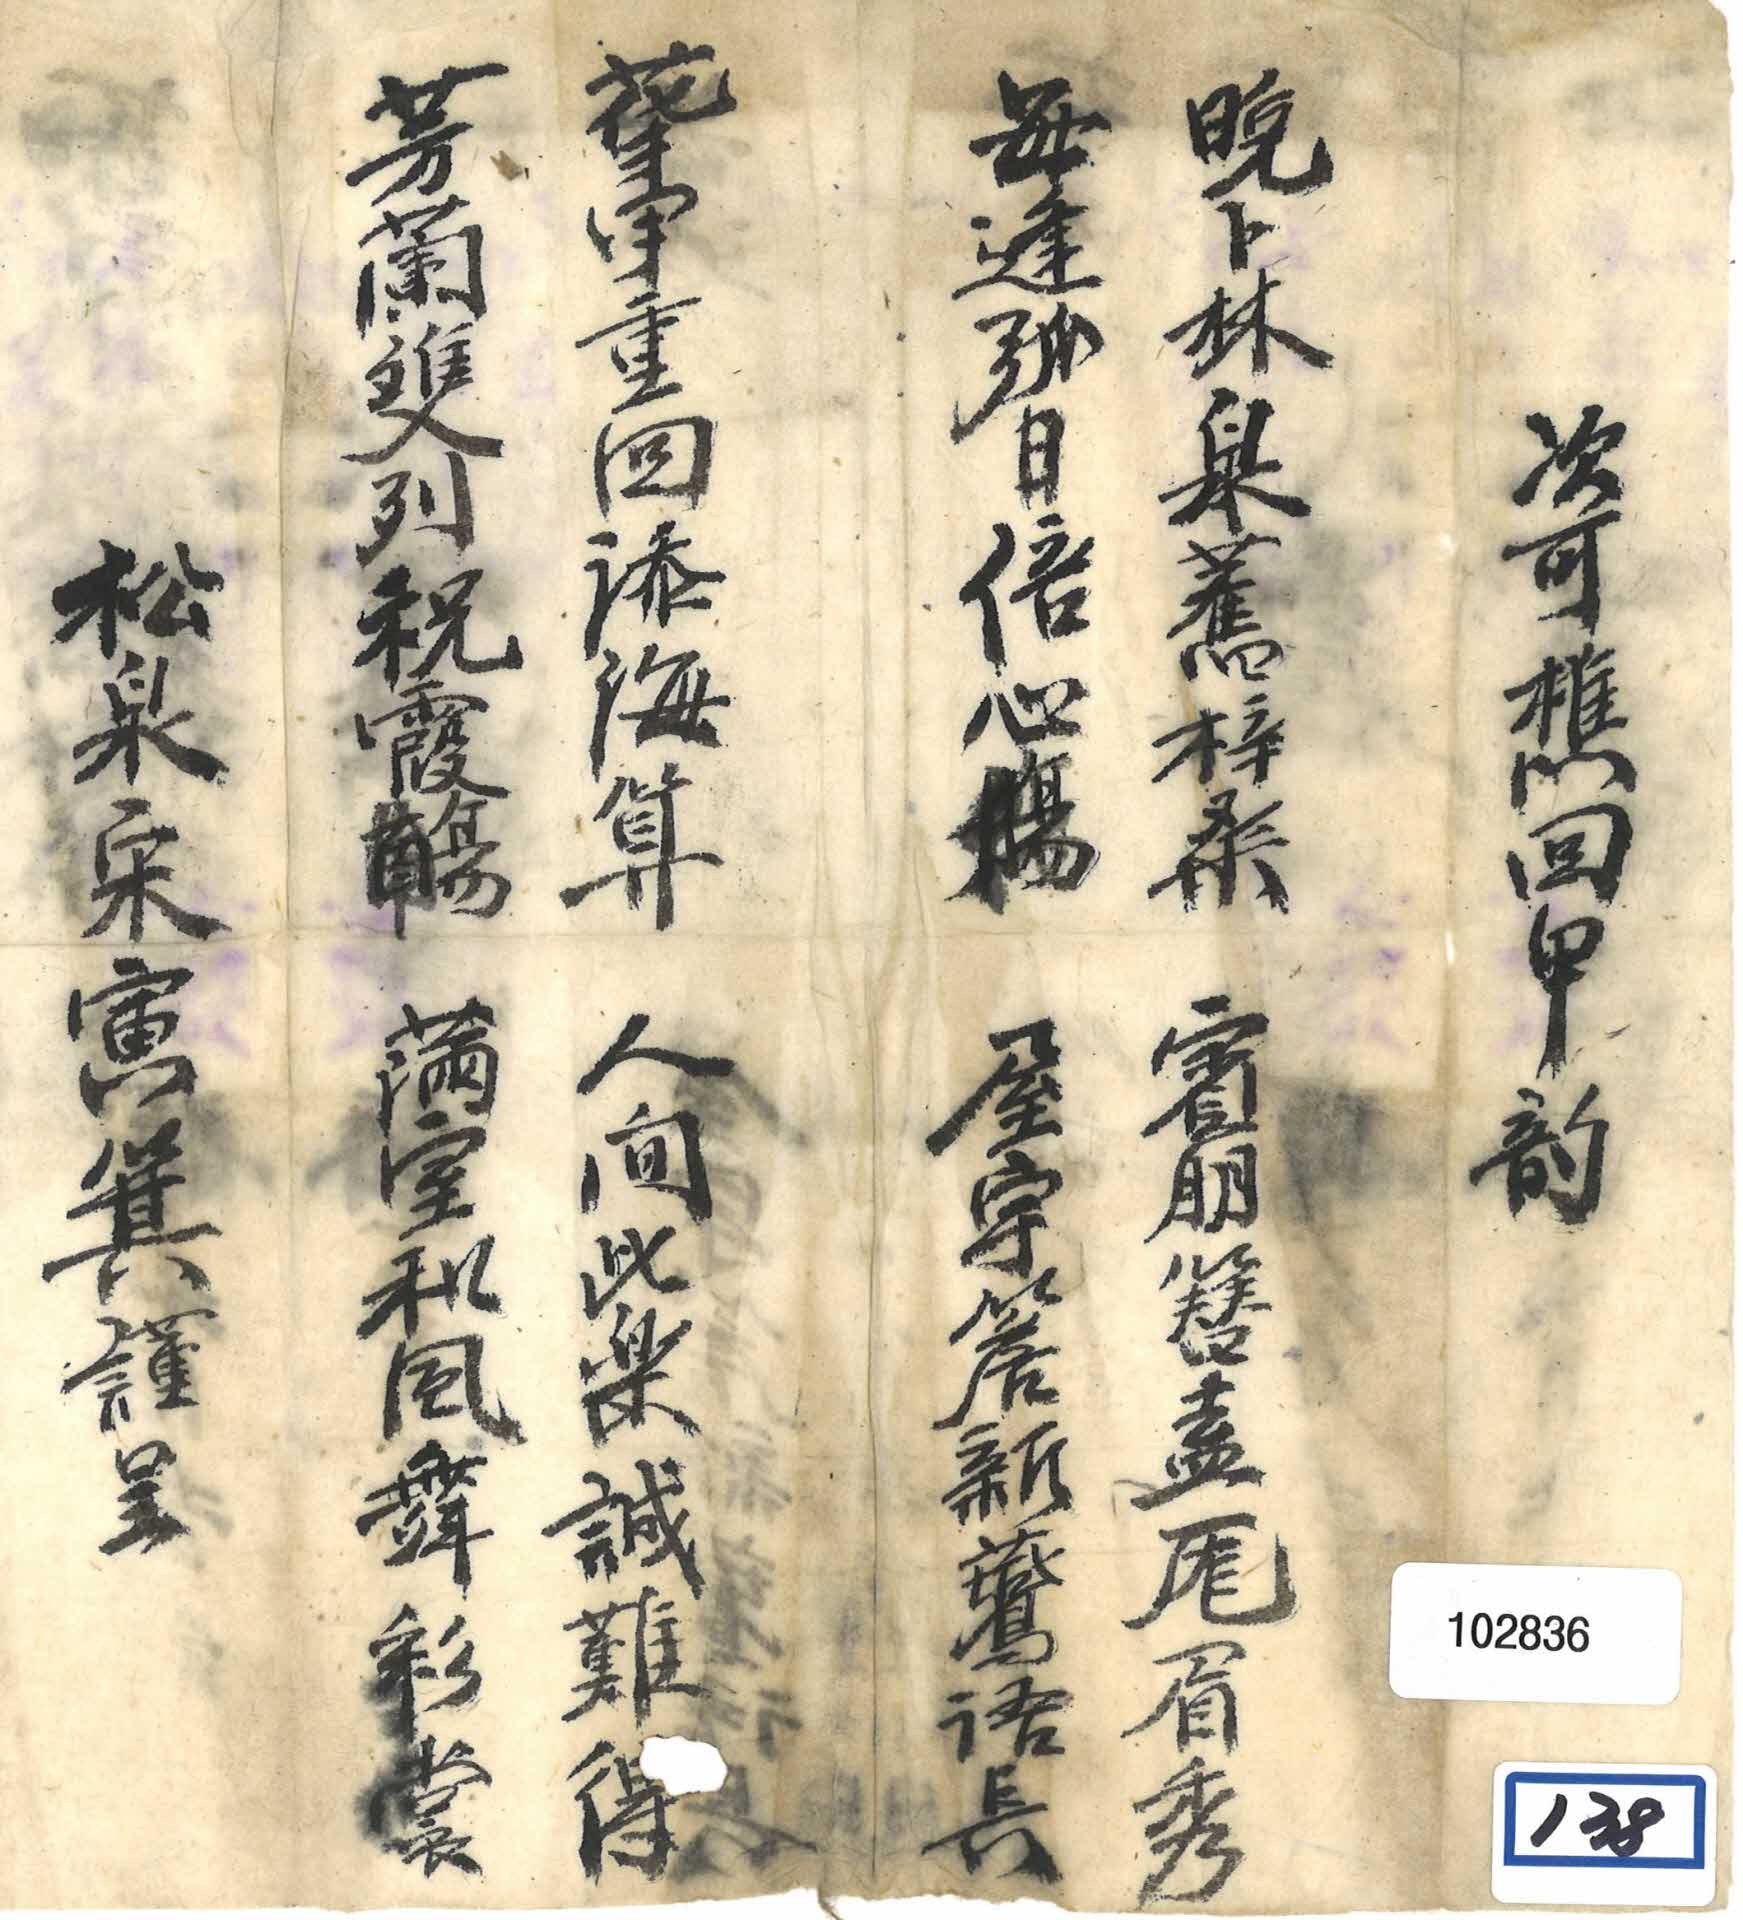 次可樵回甲韵
晩卜林皐舊梓桑 賓朋簪盍厖眉秀
每逢弧日倍心膓 屋宇簷新鷰語長
華甲重回添海算 人间此樂誠難得
芳蘭雙列祝霞觴 滿室和風舞彩裳
松泉宋寅箕謹呈
102836
138